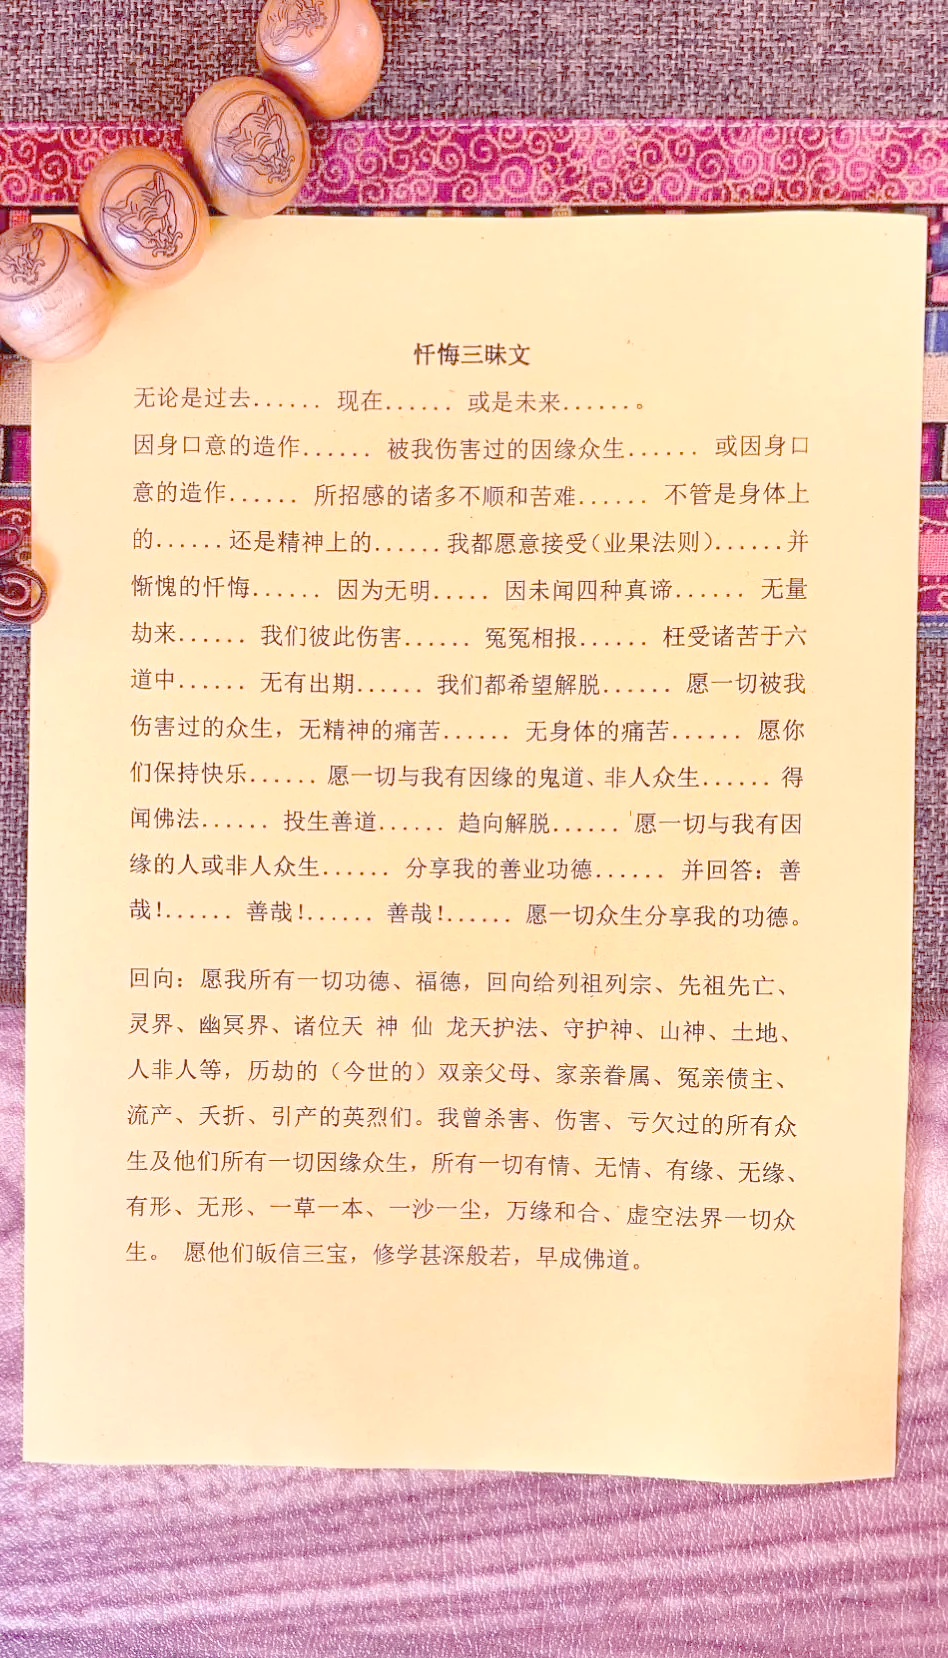 忏悔三昧文
无论是过去...... 现在...... 或是未来......。
因身口意的造作...... 被我伤害过的因缘众生...... 或因身口
意的造作...... 所招感的诸多不顺和苦难...... 不管是身体上
的......还是精神上的......我都愿意接受(业果法则)......并
惭愧的忏悔...... 因为无明..... 因未闻四种真谛...... 无量
劫来...... 我们彼此伤害...... 冤冤相报...... 枉受诸苦于六
道中...... 无有出期...... 我们都希望解脱...... 愿一切被我
伤害过的众生，无精神的痛苦...... 无身体的痛苦...... 愿你
们保持快乐...... 愿一切与我有因缘的鬼道、非人众生...... 得
闻佛法...... 投生善道...... 趋向解脱...... 愿一切与我有因
缘的人或非人众生...... 分享我的善业功德...... 并回答：善
哉！...... 善哉！...... 善哉！...... 愿一切众生分享我的功德。
回向：愿我所有一切功德、福德，回向给列祖列宗、先祖先亡、
灵界、幽冥界、诸位天 神 仙 龙天护法、守护神、山神、土地、
人非人等，历劫的（今世的）双亲父母、家亲眷属、冤亲债主、
流产、夭折、引产的英烈们。我曾杀害、伤害、亏欠过的所有众
生及他们所有一切因缘众生，所有一切有情、无情、有缘、无缘、
有形、无形、一草一本、一沙一尘，万缘和合、虚空法界一切众
生。 愿他们皈信三宝，修学甚深般若，早成佛道。